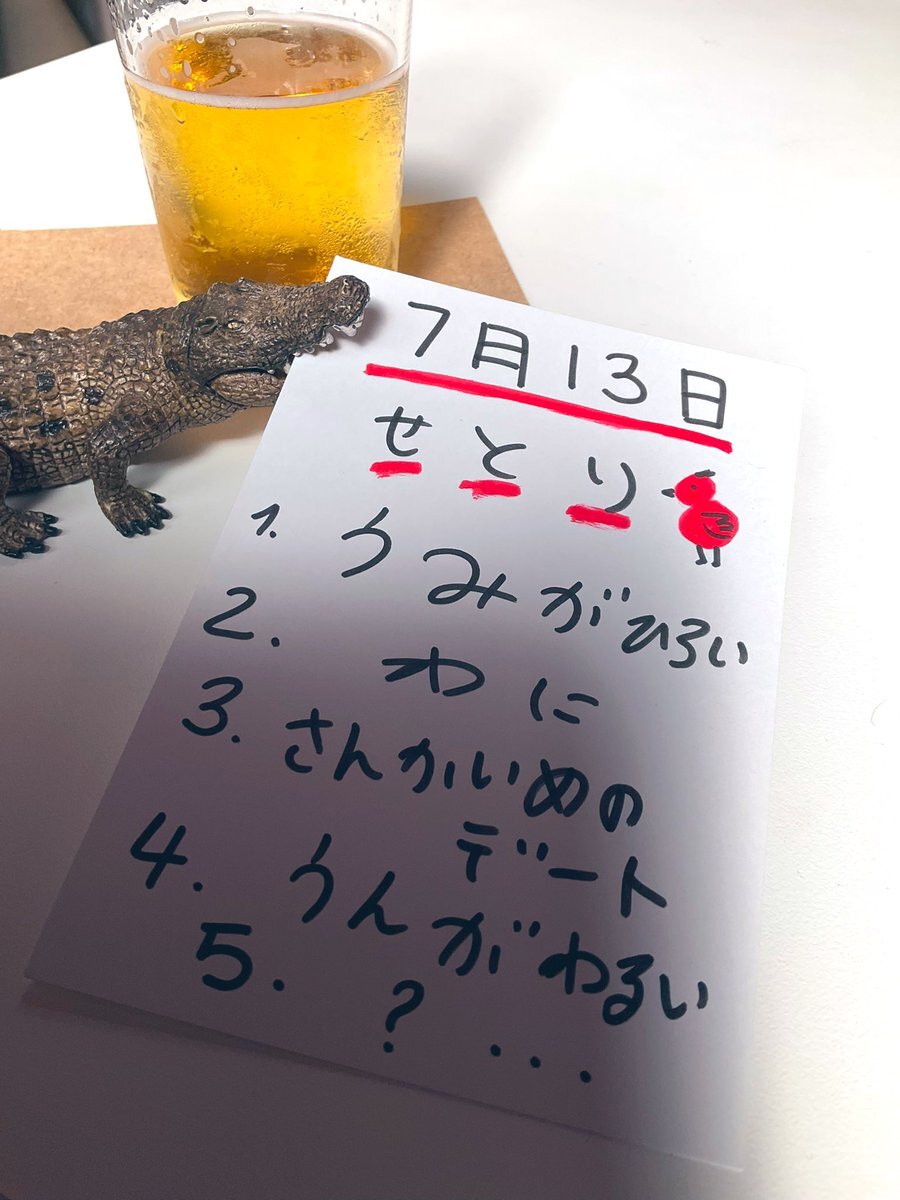 7月13日
せとり
1. うみがひろい
2. わに
3. さんかいめの
デート
4. うんがわるい
5. ? ...